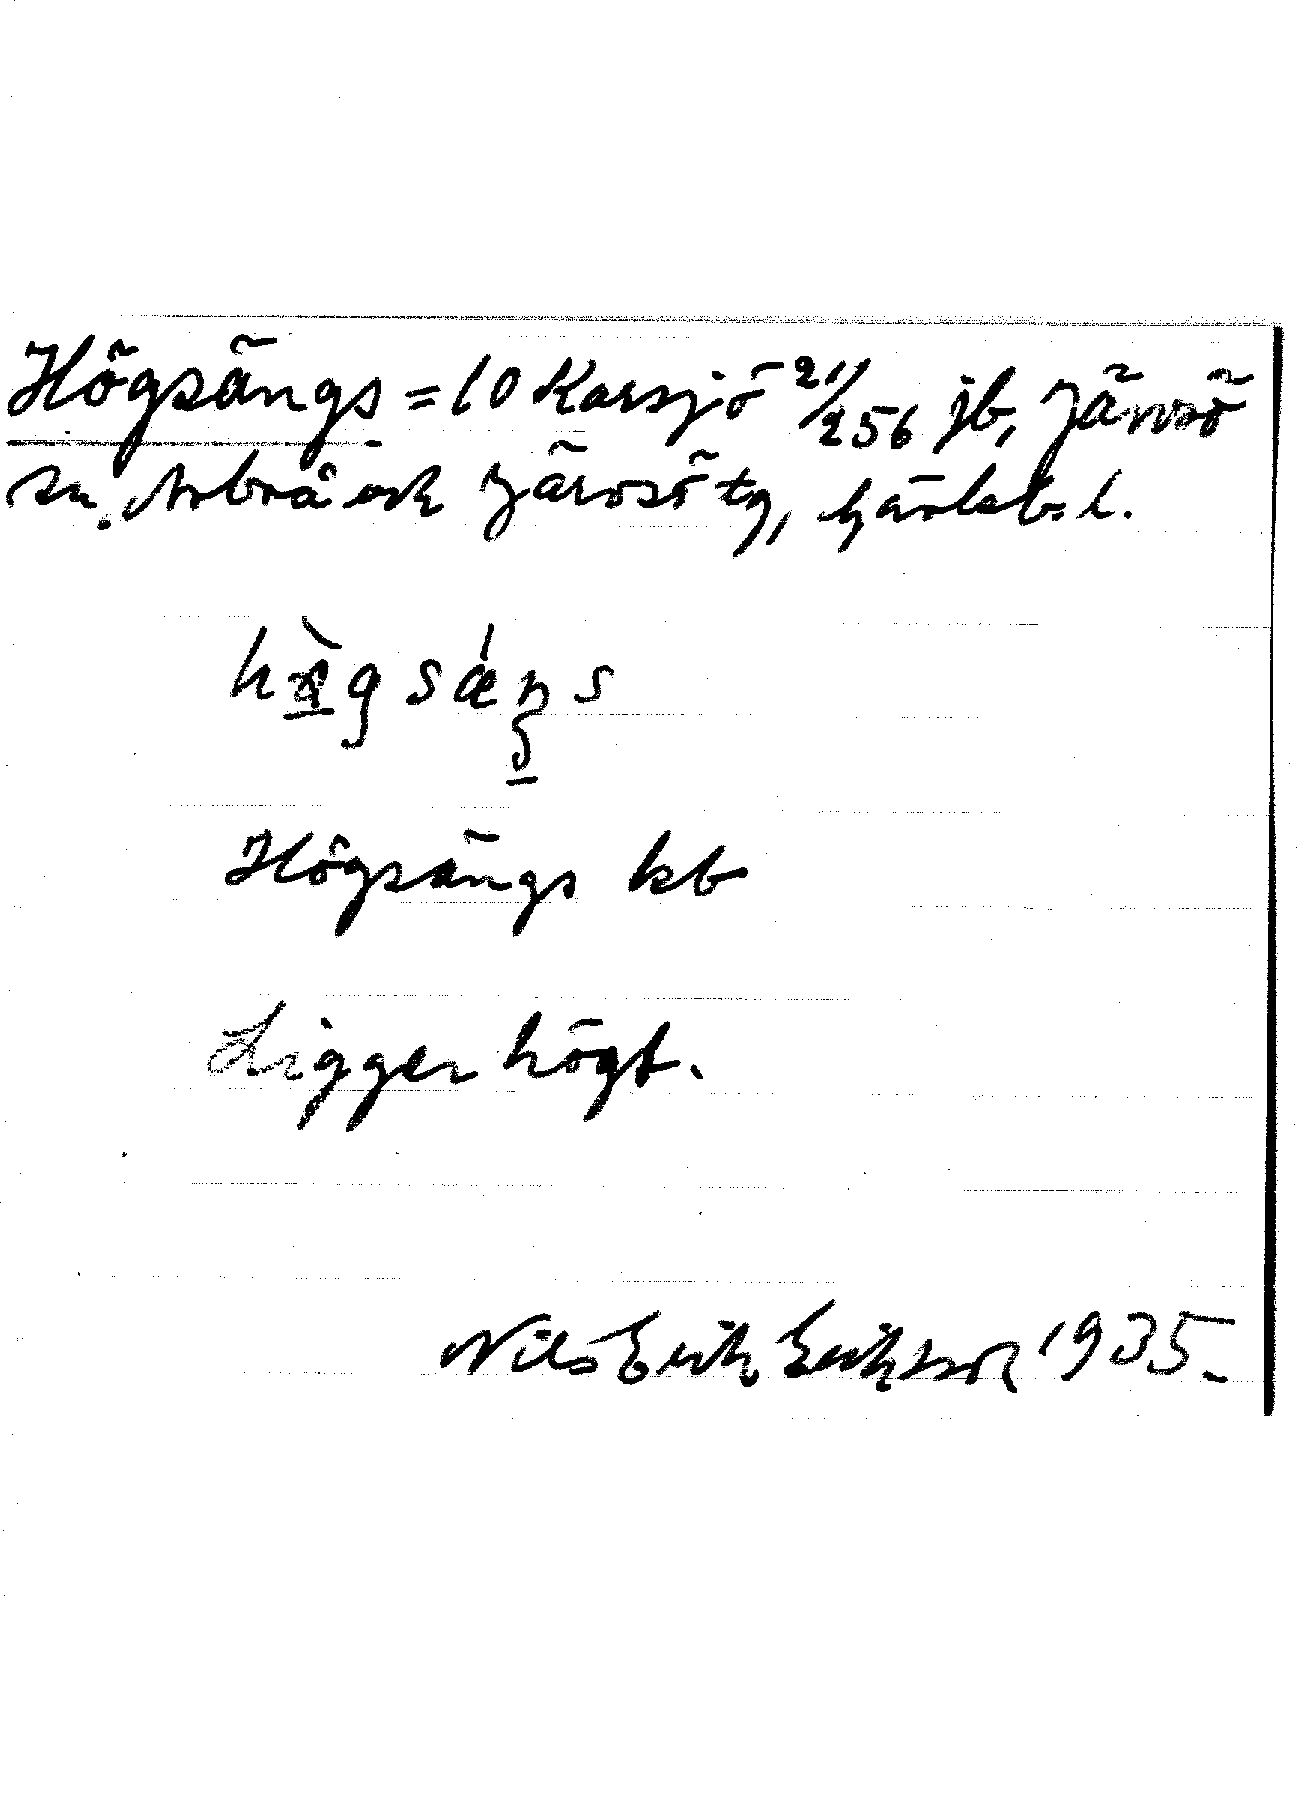 Högsängs = 10 Karsjö 21/256 jb, Järvsö
sn. Arbrå ock Järvsö tg, Gävlebs l.
hø̀gsǽŋs
Högsängs kb
Ligger högt.
Nils Erik Eriksson 1935.